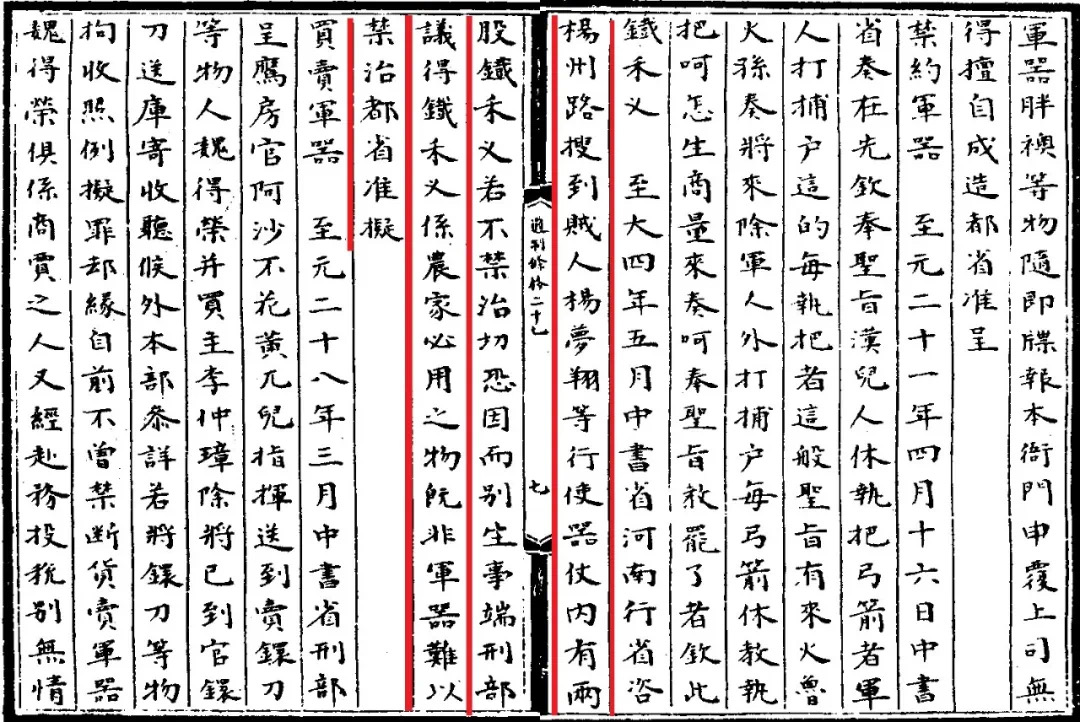 軍器胖襖等物隨即牒報本衙門申覆上司無
得擅自成造都省准呈
禁約軍器　至元二十一年四月十六日中書
省奏在先欽奉聖旨漢兒人休執把弓箭者軍
人打捕户這的每執把者這般聖旨有來火魯
火孫奏將來除軍人外打捕户每弓箭休教執
把呵怎生商量來奏呵奉聖旨敕罷了者欽此
鐵禾乂　至大四年五月中書省河南行省咨
楊州路搜到賊人楊夢翔等行使器仗内有兩
通制條格二十七
七
股鐵禾乂若不禁治切恐因而别生事端刑部
議得鐵禾乂係農家必用之物旣非軍器難以
禁治都省准擬
買賣軍器　至元二十八年三月中書省刑部
呈鷹房官阿沙不花黄兀兒指揮送到賣鐶刀
等物人魏得榮并買主李仲璋除將已到官鐶
刀送庫寄收聽候外本部叅詳若將鐶刀等物
拘收照例擬罪却緣自前不曾禁斷貨賣軍器
魏得榮俱係商賈之人又經赴務投税别無情